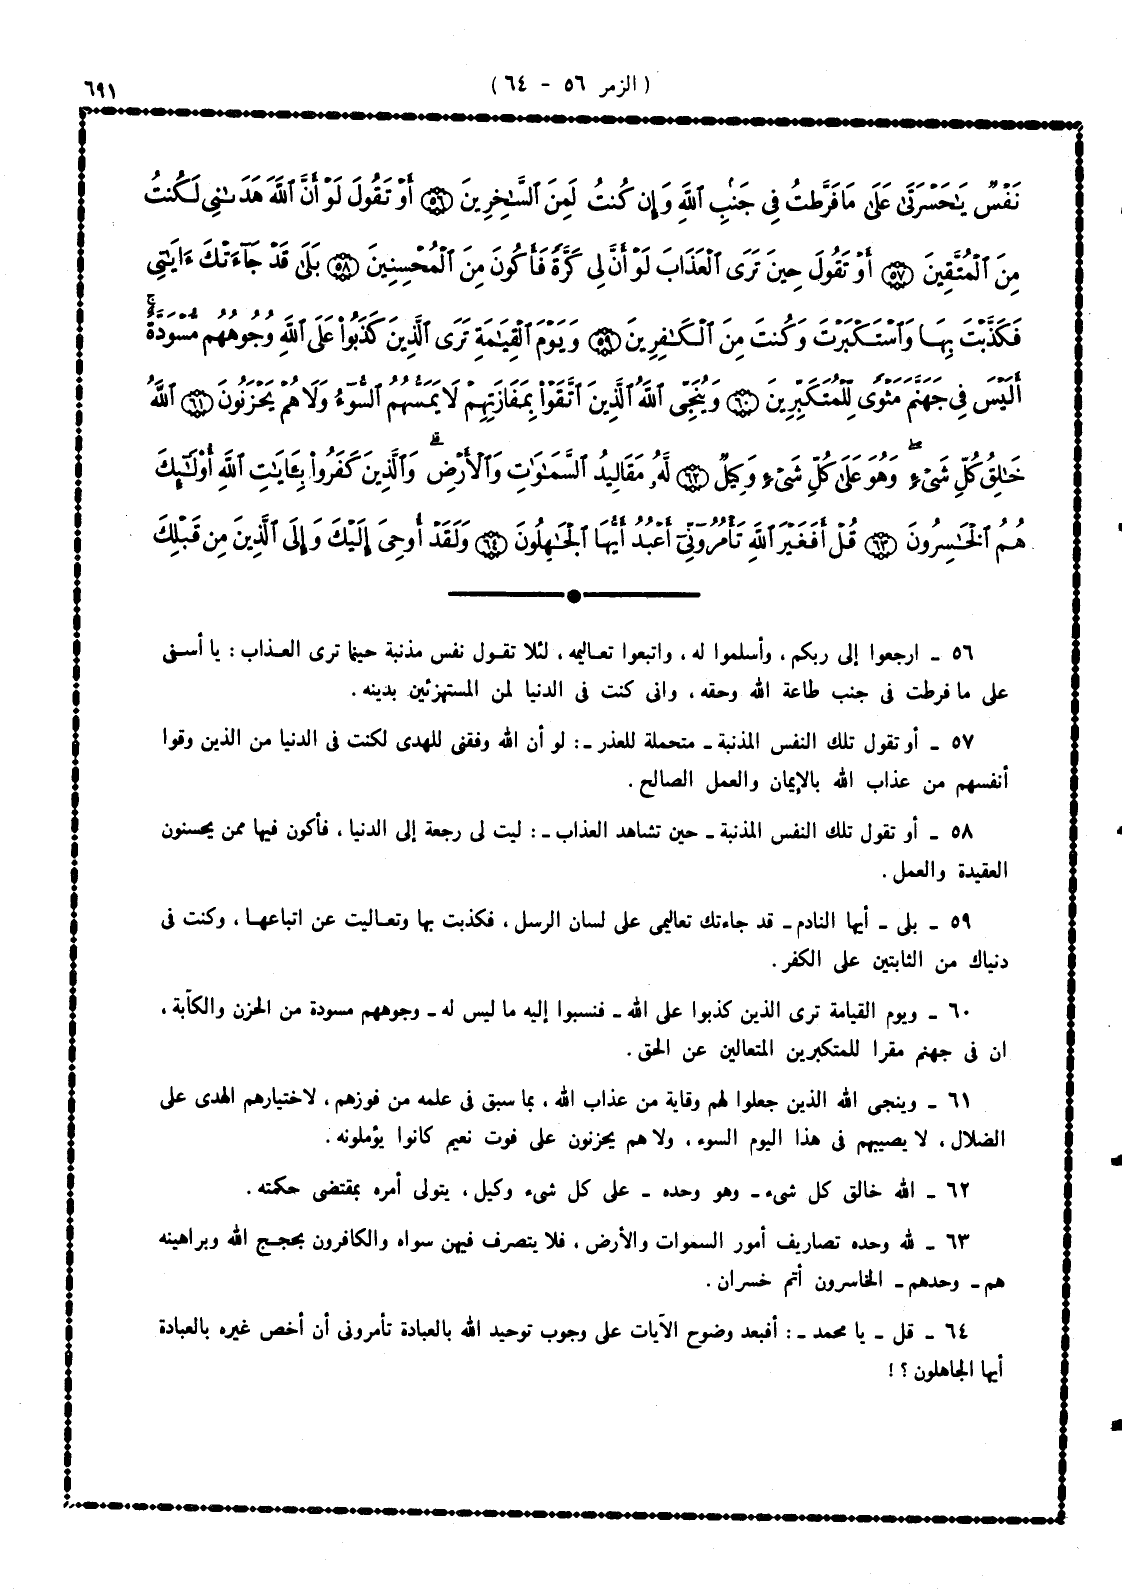 (الزمر ٥٦ - ٦٤)
٦٩١
نَفْسٌ يَٰحَسْرَتَىٰ عَلَىٰ مَا فَرَّطتُ فِي جَنۢبِ ٱللَّهِ وَإِن كُنتُ لَمِنَ ٱلسَّٰخِرِينَ ٥٦ أَوْ تَقُولَ لَوْ أَنَّ ٱللَّهَ هَدَىٰنِي لَكُنتُ
مِنَ ٱلْمُتَّقِينَ ٥٧ أَوْ تَقُولَ حِينَ تَرَى ٱلْعَذَابَ لَوْ أَنَّ لِي كَرَّةً فَأَكُونَ مِنَ ٱلْمُحْسِنِينَ ٥٨ بَلَىٰ قَدْ جَآءَتْكَ ءَايَٰتِي
فَكَذَّبْتَ بِهَا وَٱسْتَكْبَرْتَ وَكُنتَ مِنَ ٱلْكَٰفِرِينَ ٥٩ وَيَوْمَ ٱلْقِيَٰمَةِ تَرَى ٱلَّذِينَ كَذَبُوا۟ عَلَى ٱللَّهِ وُجُوهُهُم مُّسْوَدَّةٌ ۚ
أَلَيْسَ فِي جَهَنَّمَ مَثْوًى لِّلْمُتَكَبِّرِينَ ٦٠ وَيُنَجِّي ٱللَّهُ ٱلَّذِينَ ٱتَّقَوْا۟ بِمَفَازَتِهِمْ لَا يَمَسُّهُمُ ٱلسُّوٓءُ وَلَا هُمْ يَحْزَنُونَ ٦١ ٱللَّهُ
خَٰلِقُ كُلِّ شَيْءٍ ۖ وَهُوَ عَلَىٰ كُلِّ شَيْءٍ وَكِيلٌ ٦٢ لَّهُۥ مَقَالِيدُ ٱلسَّمَٰوَٰتِ وَٱلْأَرْضِ ۗ وَٱلَّذِينَ كَفَرُوا۟ بِـَٔايَٰتِ ٱللَّهِ أُو۟لَٰٓئِكَ
هُمُ ٱلْخَٰسِرُونَ ٦٣ قُلْ أَفَغَيْرَ ٱللَّهِ تَأْمُرُوٓنِّيٓ أَعْبُدُ أَيُّهَا ٱلْجَٰهِلُونَ ٦٤ وَلَقَدْ أُوحِيَ إِلَيْكَ وَإِلَى ٱلَّذِينَ مِن قَبْلِكَ
٥٦ ـ ارجعوا إلى ربكم ، وأسلموا له ، واتبعوا تعاليمه ، لئلا تقول نفس مذنبة حينما ترى العذاب : يا أسفى
على ما فرطت فى جنب طاعة الله وحقه ، وانى كنت فى الدنيا لمن المستهزئين بدينه .
٥٧ ـ أو تقول تلك النفس المذنبة ـ متحملة للعذر ـ : لو أن الله وفقنى للهدى لكنت فى الدنيا من الذين وقوا
أنفسهم من عذاب الله بالإيمان والعمل الصالح .
٥٨ ـ أو تقول تلك النفس المذنبة ـ حين تشاهد العذاب ـ : ليت لى رجعة إلى الدنيا ، فأكون فيها ممن يحسنون
العقيدة والعمل .
٥٩ ـ بلى ـ أيها النادم ـ قد جاءتك تعاليمى على لسان الرسل ، فكذبت بها وتعاليت عن اتباعها ، وكنت فى
دنياك من الثابتين على الكفر .
٦٠ ـ ويوم القيامة ترى الذين كذبوا على الله ـ فنسبوا إليه ما ليس له ـ وجوههم مسودة من الحزن والكآبة ،
ان فى جهنم مقرا للمتكبرين المتعالين عن الحق .
٦١ ـ وينجى الله الذين جعلوا لهم وقاية من عذاب الله ، بما سبق فى علمه من فوزهم ، لاختيارهم الهدى على
الضلال ، لا يصيبهم فى هذا اليوم السوء ، ولا هم يحزنون على فوت نعيم كانوا يؤملونه .
٦٢ ـ الله خالق كل شىء ـ وهو وحده ـ على كل شىء وكيل ، يتولى أمره بمقتضى حكمته .
٦٣ ـ لله وحده تصاريف أمور السموات والأرض ، فلا يتصرف فيهن سواه والكافرون بحجج الله وبراهينه
هم ـ وحدهم ـ الخاسرون أتم خسران .
٦٤ ـ قل ـ يا محمد ـ : أفبعد وضوح الآيات على وجوب توحيد الله بالعبادة تأمرونى أن أخص غيره بالعبادة
أيها الجاهلون ؟ !